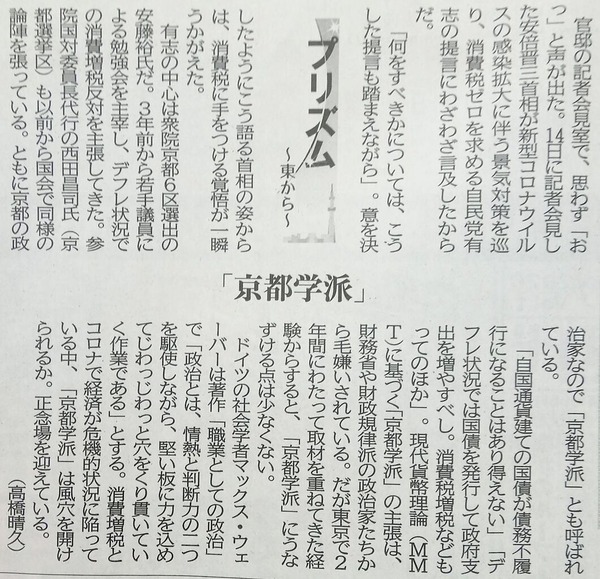 プリズム
〜東から〜
「京都学派」
官邸の記者会見室で、思わず「お
っ」と声が出た。14日に記者会見し
た安倍晋三首相が新型コロナウイル
スの感染拡大に伴う景気対策を巡
り、消費税ゼロを求める自民党有
志の提言にわざわざ言及したから
だ。
「何をすべきかについては、こう
した提言も踏まえながら」。意を決
したようにこう語る首相の姿から
は、消費税に手をつける覚悟が一瞬
うかがえた。
有志の中心は衆院京都6区選出の
安藤裕氏だ。3年前から若手議員に
よる勉強会を主宰し、デフレ状況で
の消費増税反対を主張してきた。参
院国対委員長代行の西田昌司氏（京
都選挙区）も以前から国会で同様の
論陣を張っている。ともに京都の政
治家なので「京都学派」とも呼ばれ
ている。
「自国通貨建ての国債が債務不履
行になることはあり得えない」「デ
フレ状況では国債を発行して政府支
出を増やすべし。消費税増税なども
ってのほか」。現代貨幣理論（MM
T）に基づく「京都学派」の主張は、
財務省や財政規律派の政治家たちか
ら毛嫌いされている。だが東京で2
年間にわたって取材を重ねてきた経
験からすると、「京都学派」にうな
ずける点は少なくない。
ドイツの社会学者マックス・ウェ
ーバーは著作「職業としての政治」
で「政治とは、情熱と判断力の二つ
を駆使しながら、堅い板に力を込め
てじわっじわっと穴をくり貫いてい
く作業である」とする。消費増税と
コロナで経済が危機的状況に陥って
いる中、「京都学派」は風穴を開け
られるか。正念場を迎えている。
（高橋晴久）